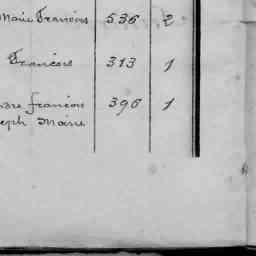 Marie François 536 2
François 313 1
françois 396 1
Marie